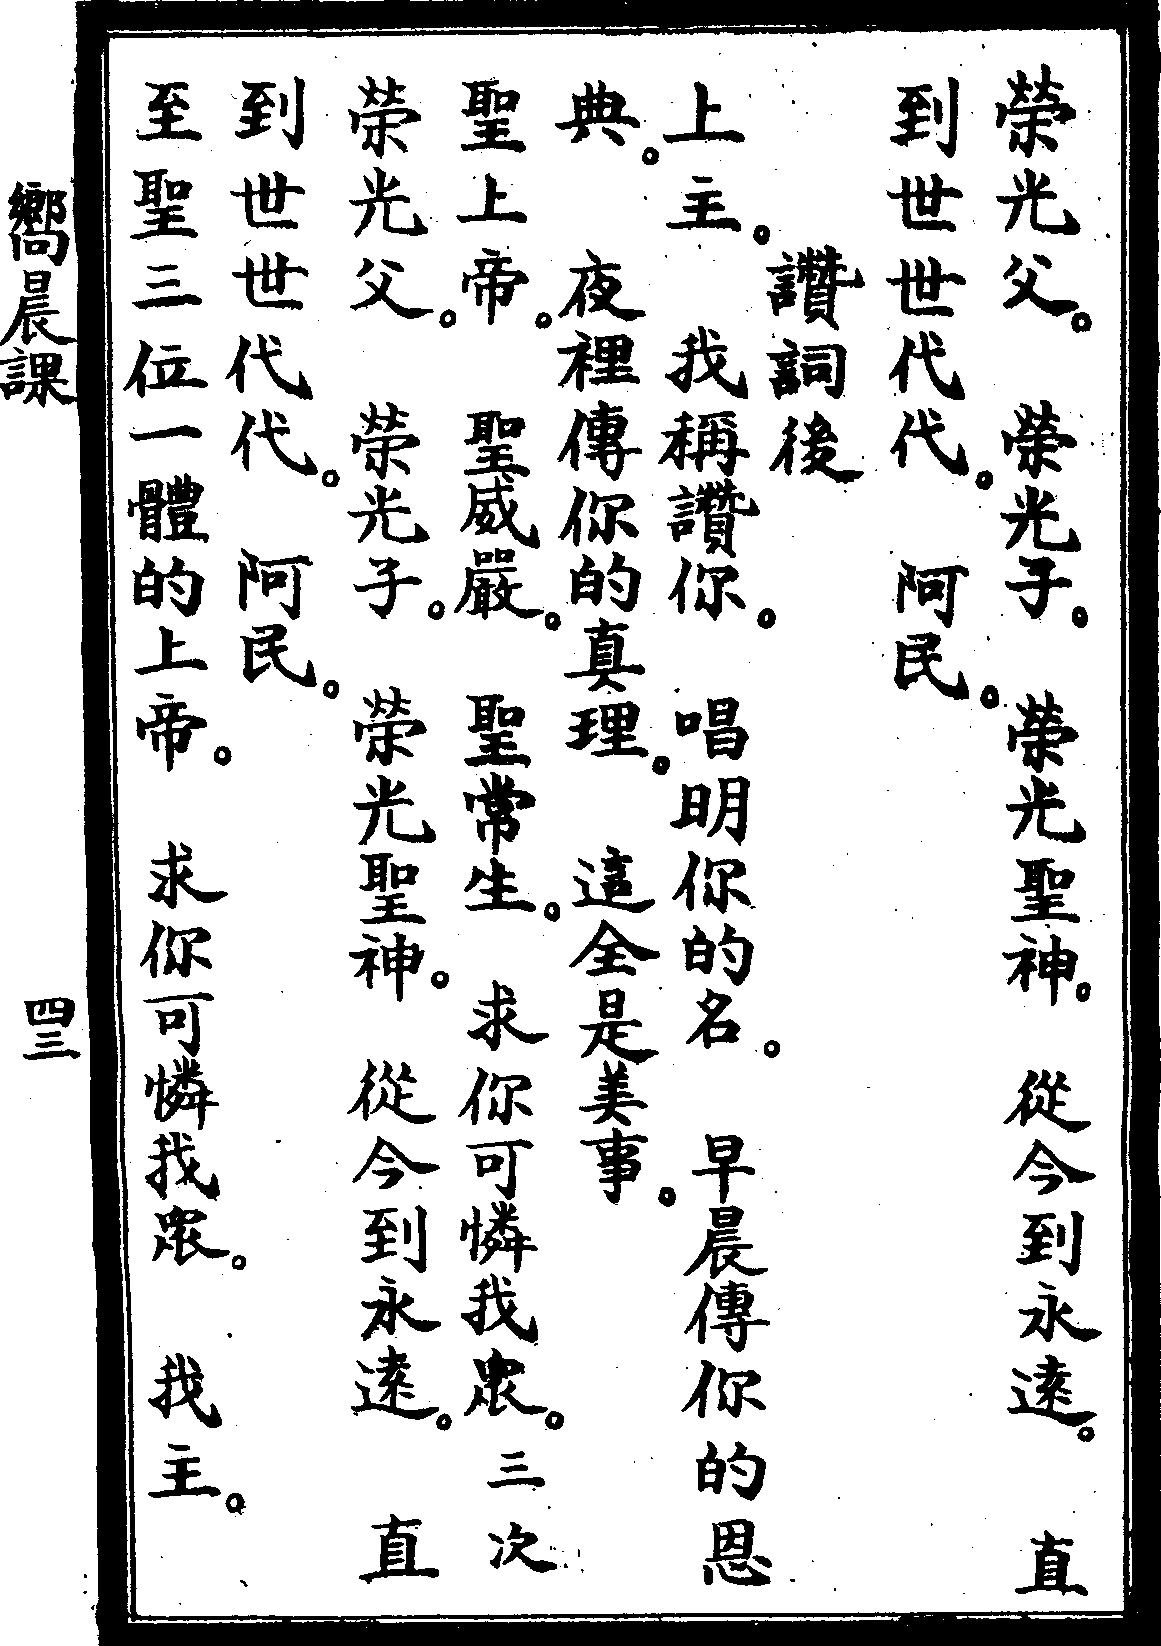 榮光父。榮光子。榮光聖神。從今到永遠。直
到世世代代。阿民。
讚詞後
上主。我稱讚你。唱明你的名。早晨傳你的恩
典。夜裡傳你的真理。這全是美事。
聖上帝。聖威嚴。聖常生。求你可憐我眾。三次
榮光父。榮光子。榮光聖神。從今到永遠。直
到世世代代。阿民。
至聖三位一體的上帝。求你可憐我眾。我主。
嚮晨課
四三